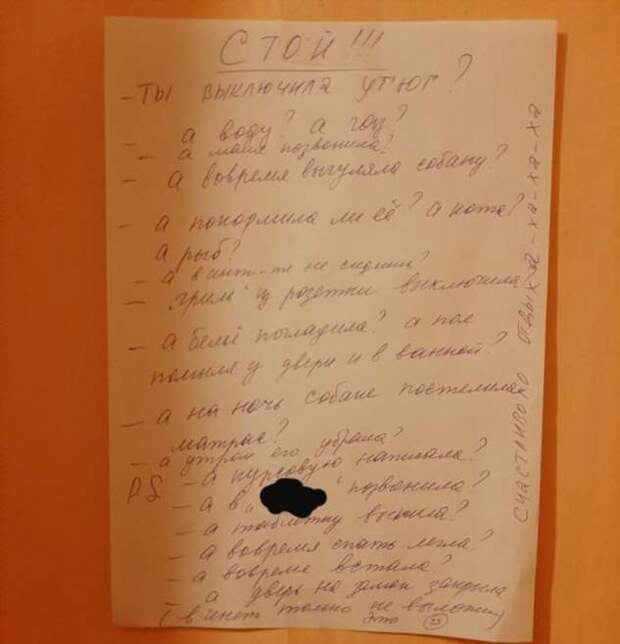 СТОЙ!!!
– ТЫ ВЫКЛЮЧИЛА УТЮГ?
– а воду? а газ?
– а маме позвонила?
– а вовремя выгуляла собаку?
– а покормила ли её? а кота?
а рыб?
– а в инт-те не сидишь?
– "гриль" из розетки выключила?
– а бельё погладила? а пол
помыла у двери и в ванной?
– а на ночь собаке постелила
матрас?
– а утром его убрала?
P.S – а курсовую написала?
– а в " " позвонила?
– а таблетку выпила?
– а вовремя спать легла?
– а вовремя встала?
– а дверь на замок закрыла
(в инет только не выложи
это
СЧАСТЛИВОГО ОТДЫХА-ХА-ХА-ХА